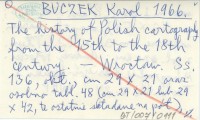 BUCZEK Karol 1966.
The history of Polish cartography
from the 15th to the 18th
century. — Wrocław. Ss.
136, cm 29 X 21 oraz
osobno tabl. 48 (cm 29 X 21 lub 29
X 42, te ostatnie składane na pół)